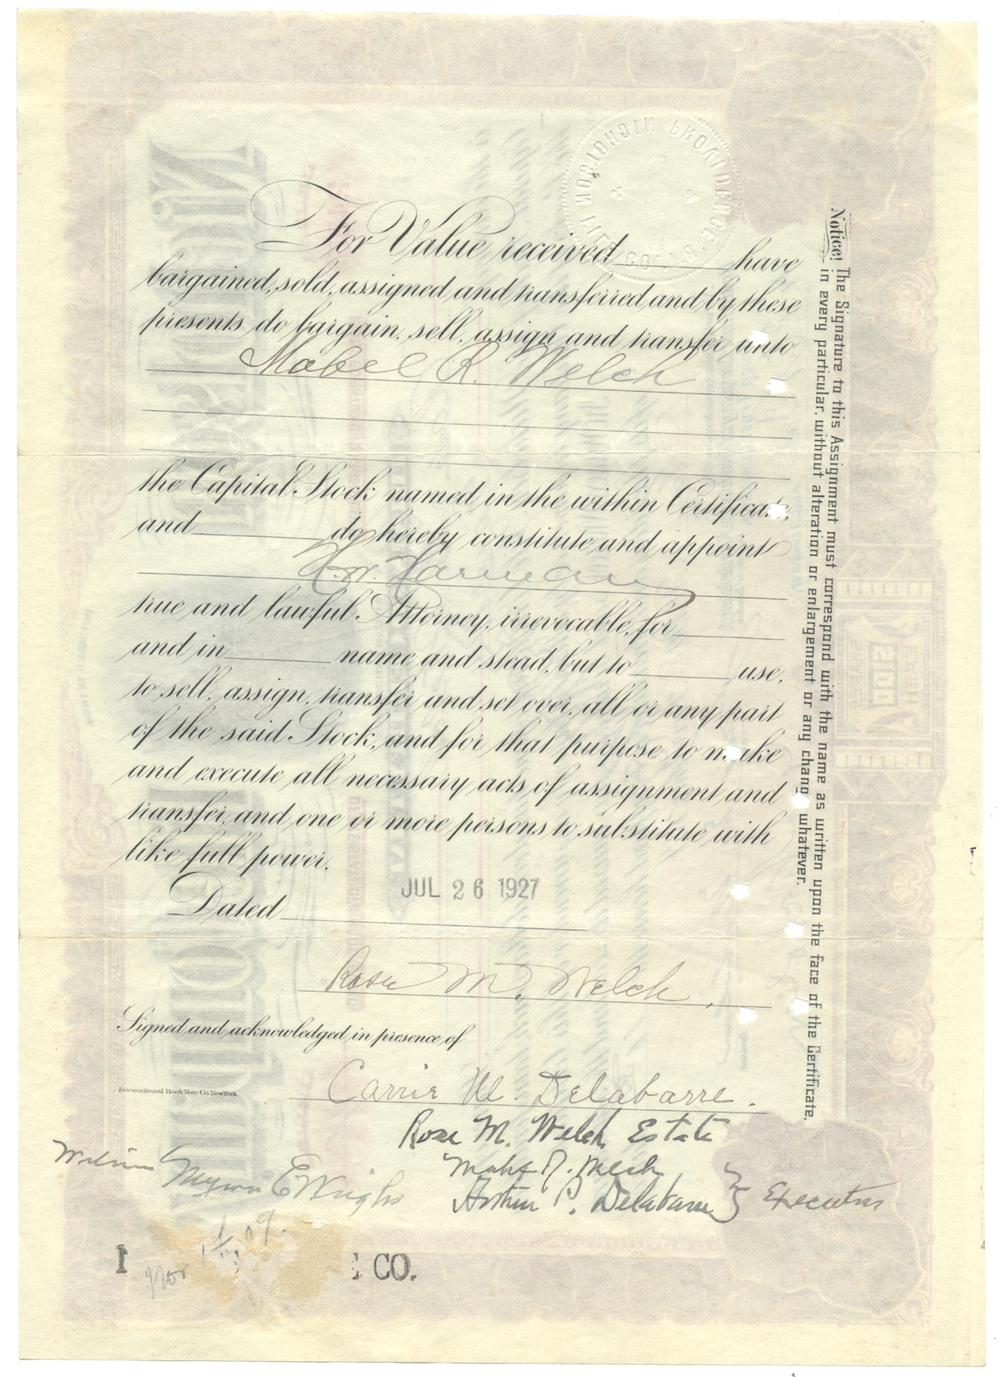 For Value received ______ have
bargained, sold, assigned and transferred and by these
presents do bargain, sell, assign and transfer unto
Mabel R. Welch
the Capital Stock named in the within Certificate,
and ______ do hereby constitute and appoint
true and lawful Attorney, irrevocable, for ______
and in ______ name and stead, but to ______ use,
to sell, assign, transfer and set over, all or any part
of the said Stock, and for that purpose to make
and execute all necessary acts of assignment and
transfer, and one or more persons to substitute with
like full power.
Dated JUL 26 1927
Rose M. Welch.
Signed and acknowledged in presence of
International Bank Note Co. New York.
Carrie M. Delabarre.
Rose M. Welch Estate
Mabel R. Welch
Arthur P. Delabarre } Executors
Witness Myron E Wright
CO.
Notice! The Signature to this Assignment must correspond with the name as written upon the face of the Certificate,
in every particular, without alteration or enlargement or any change whatever.